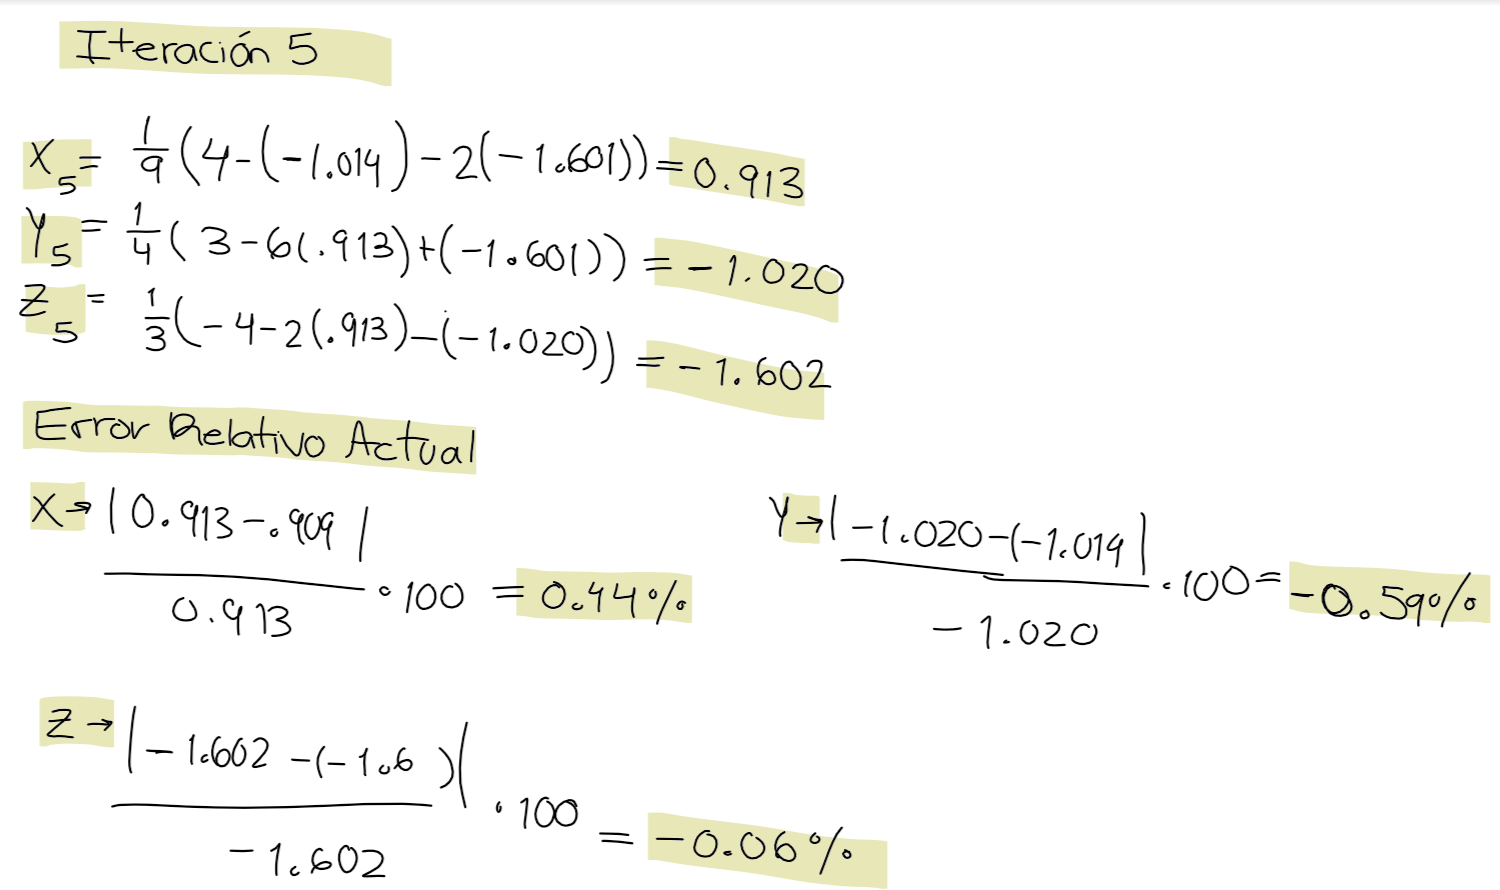 Iteración 5
X₅ = 1/9 (4-(-1.014)-2(-1.601)) = 0.913
Y₅ = 1/4 (3-6(.913)+(-1.601)) = -1.020
Z₅ = 1/3 (-4-2(.913)-(-1.020)) = -1.602
Error Relativo Actual
X → |0.913-.909| / 0.913 · 100 = 0.44%
Y → |-1.020-(-1.014| / -1.020 · 100 = -0.59%
Z → |-1.602-(-1.6)| / -1.602 · 100 = -0.06%